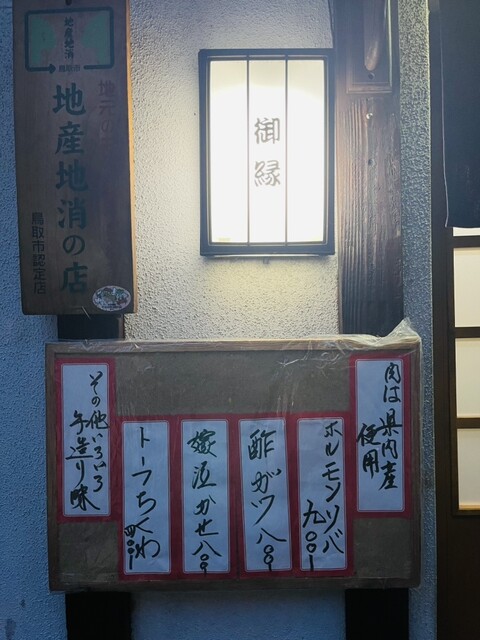 地産地消
鳥取市
地元の
地産地消の店
鳥取市認定店
御縁
肉は県内産
使用
ホルモンソバ
九〇〇一
酢ガツ八〇〇
嫁泣かせ八〇〇
トーフちくわ
四〇〇
その他いろいろ
手造り味